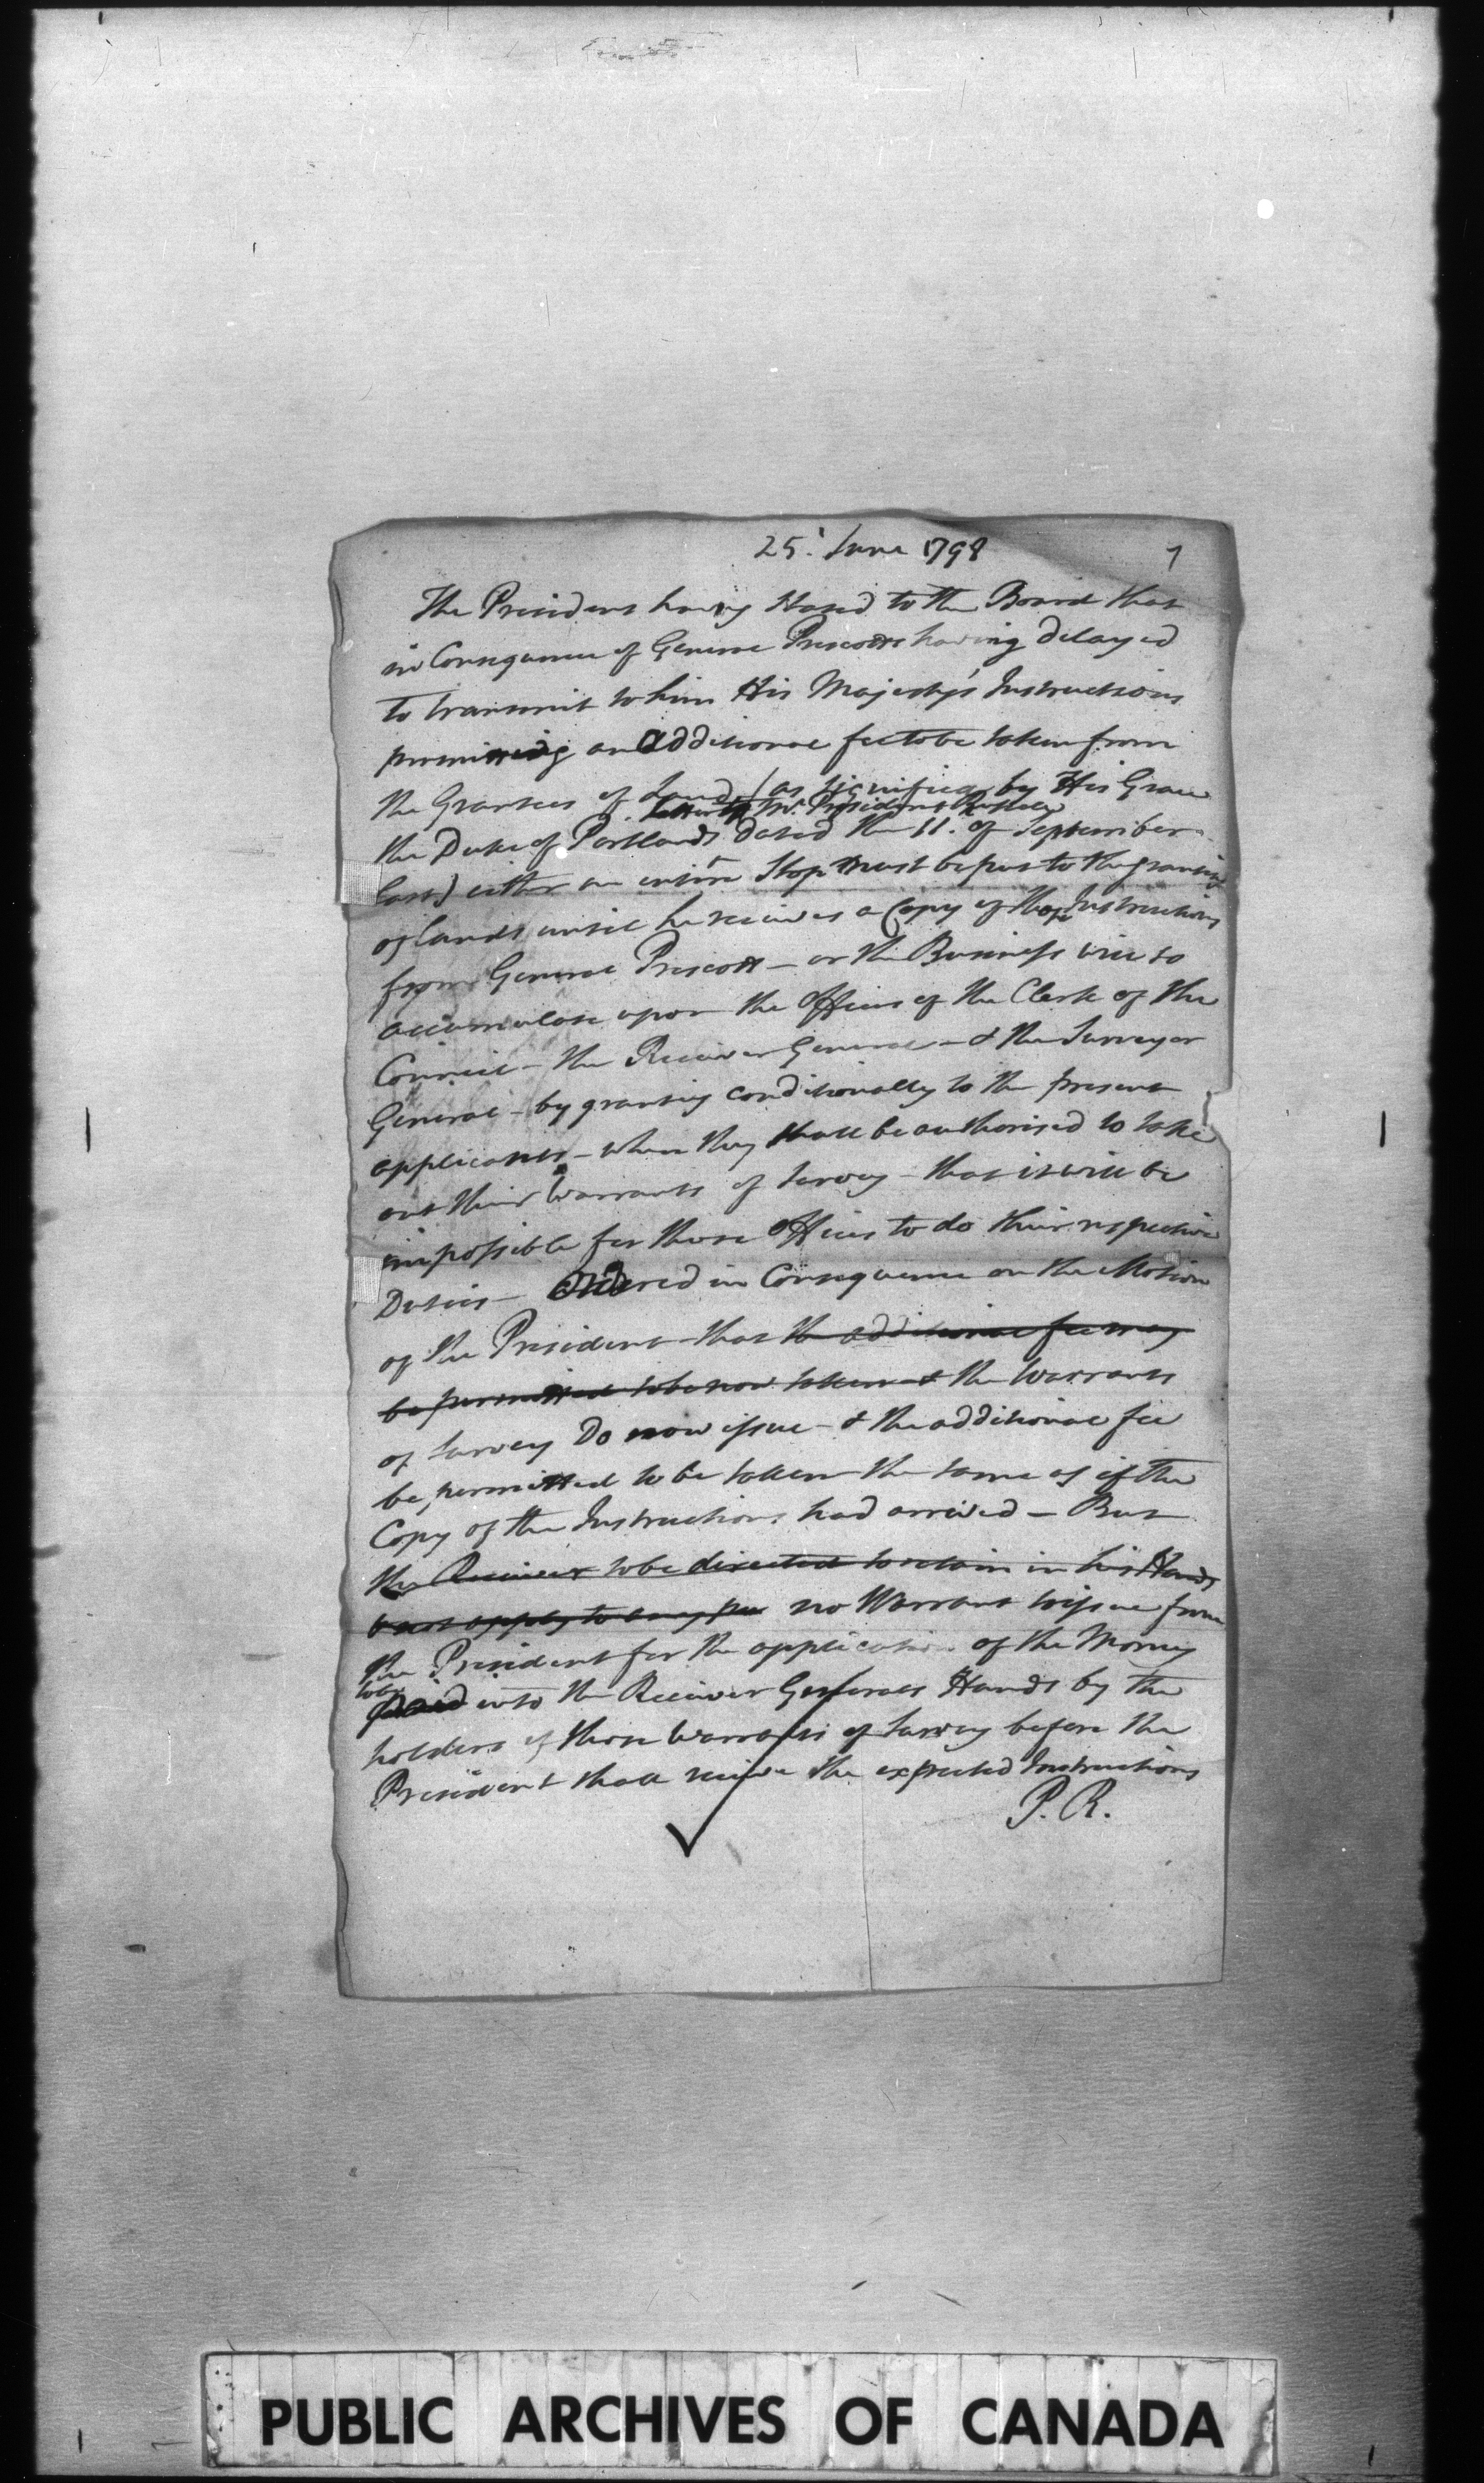 25. June 1798
7
The President having stated to the Board that
in Consequence of General Prescotts having delayed
to transmit to him His Majesty's Instructions
permitting an additional fee to be taken from
the Grantees of Land (as signified by His Grace
Letter to Mr. President Russell
the Duke of Portlands dated the 11. of September
last) either an entire Stop must be put to the granting
of Lands until he receives a Copy of those Instructions
from General Prescott – or the Business will so
accumulate upon the Offices of the Clerk of the
Council – the Receiver General – & the Surveyor
General – by granting conditionally to the present
applicants – when they shall be authorised to take
out their Warrants of Survey – that it will be
impossible for those Offices to do their respective
Duties – Ordered in Consequence on the Motion
of the President that the additional fee may
be permitted to be now taken & the Warrants
of Survey Do now issue – & the additional fee
be permitted to be taken the same as if the
Copy of the Instructions had arrived – But
the Receiver to be directed to retain in his Hands
& not apply to any no Warrant to issue from
the President for the application of the Money
to be
paid into the Receiver Generals Hands by the
holders of those Warrants of Survey before the
President shall receive the expected Instructions
P. R.
PUBLIC ARCHIVES OF CANADA